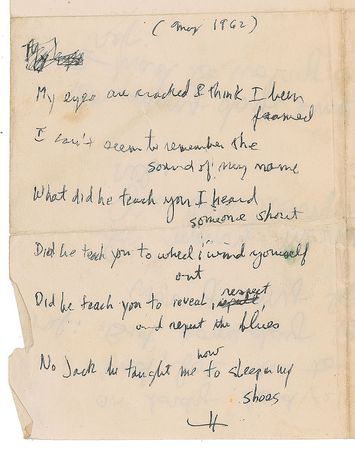 (May 1962)
My eyes are cracked I think I been
framed
I can't seem to remember the
sound of my name
What did he teach you I heard
someone shout
Did he teach you to wheel & wind yourself
out
Did he teach you to reveal, respect
and repent the blues
No Jack he taught me how to sleep in my
shoes